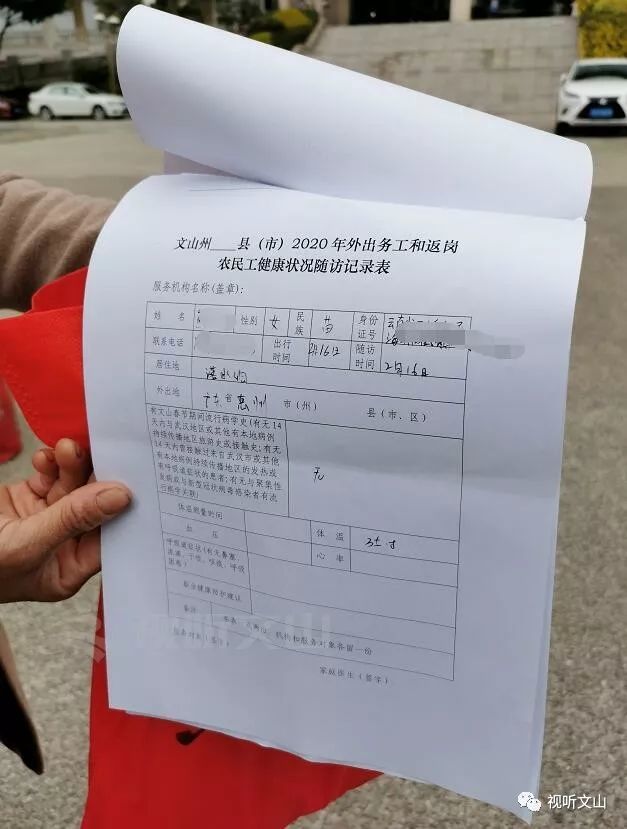 文山州___县（市）2020年外出务工和返岗
农民工健康状况随访记录表
服务机构名称(盖章):
姓名 性别 女 民族 苗 身份证号
联系电话 出行时间 2月16日 随访时间 2月16日
居住地
外出地 广东省惠州 市(州) 县(市、区)
有文山春节期间流行病学史(有无14
天内与武汉地区或其他有本地病例
持续传播地区旅游史或接触史;有无
14天内曾接触过来自武汉市或其他
有本地病例持续传播地区的发热或
有呼吸道症状的患者;有无与聚集性
发病或与新型冠状病毒感染者有流
行病学关联) 无
体温测量时间 体温
血压 心率
呼吸道症状(有无鼻塞、
流涕、干咳、咽痛、呼吸
困难)
职业健康防护建议
备注 本表一式两份，机构和服务对象各留一份
服务对象(签字) 家庭医生(签字)
视听文山
视听文山